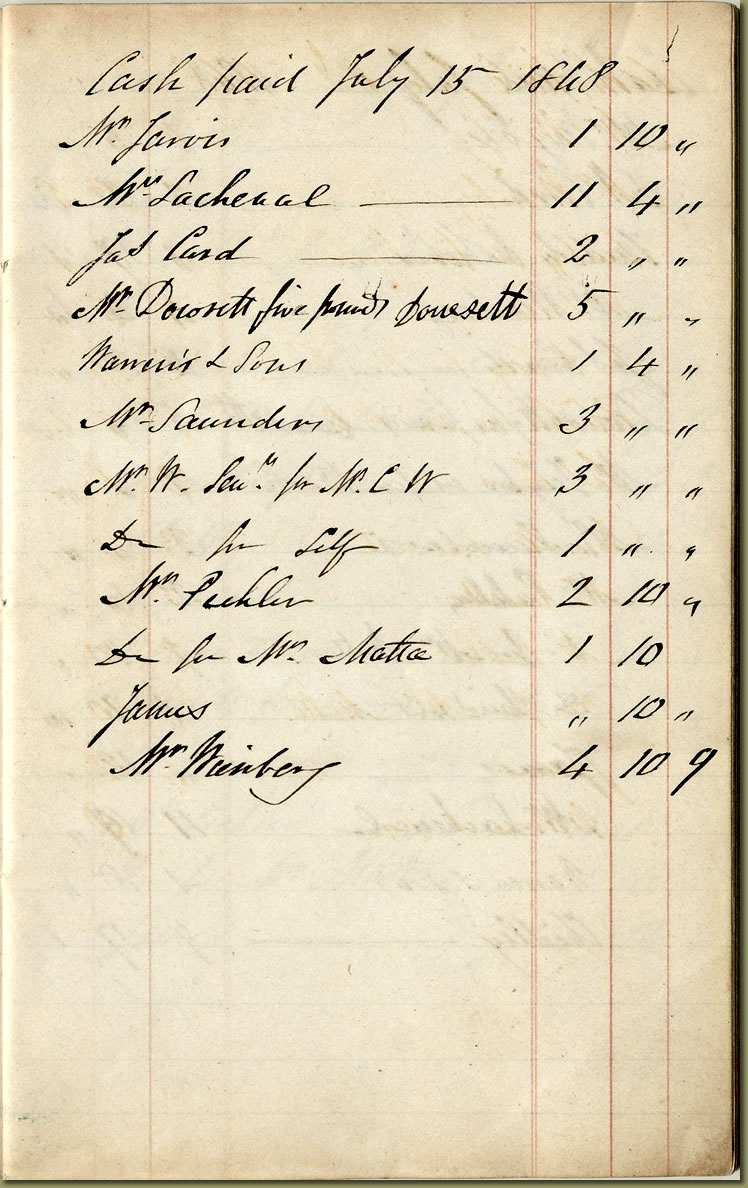 Cash paid July 15 1848
Mr. Jarvis 1 10 "
Mr. Lachenal — 11 4 "
Jas Card — 2 " "
Mr. Dowsett five pounds Dowsett 5 " "
Warren's & Sons 1 4 "
Mr. Saunders 3 " "
Mr. W. Senr. for Mr. C W 3 " "
Do for Self 1 " "
Mr. 2 10 "
Do for Mr. 1 10
James " 10 "
Mr. Weinberg 4 10 9